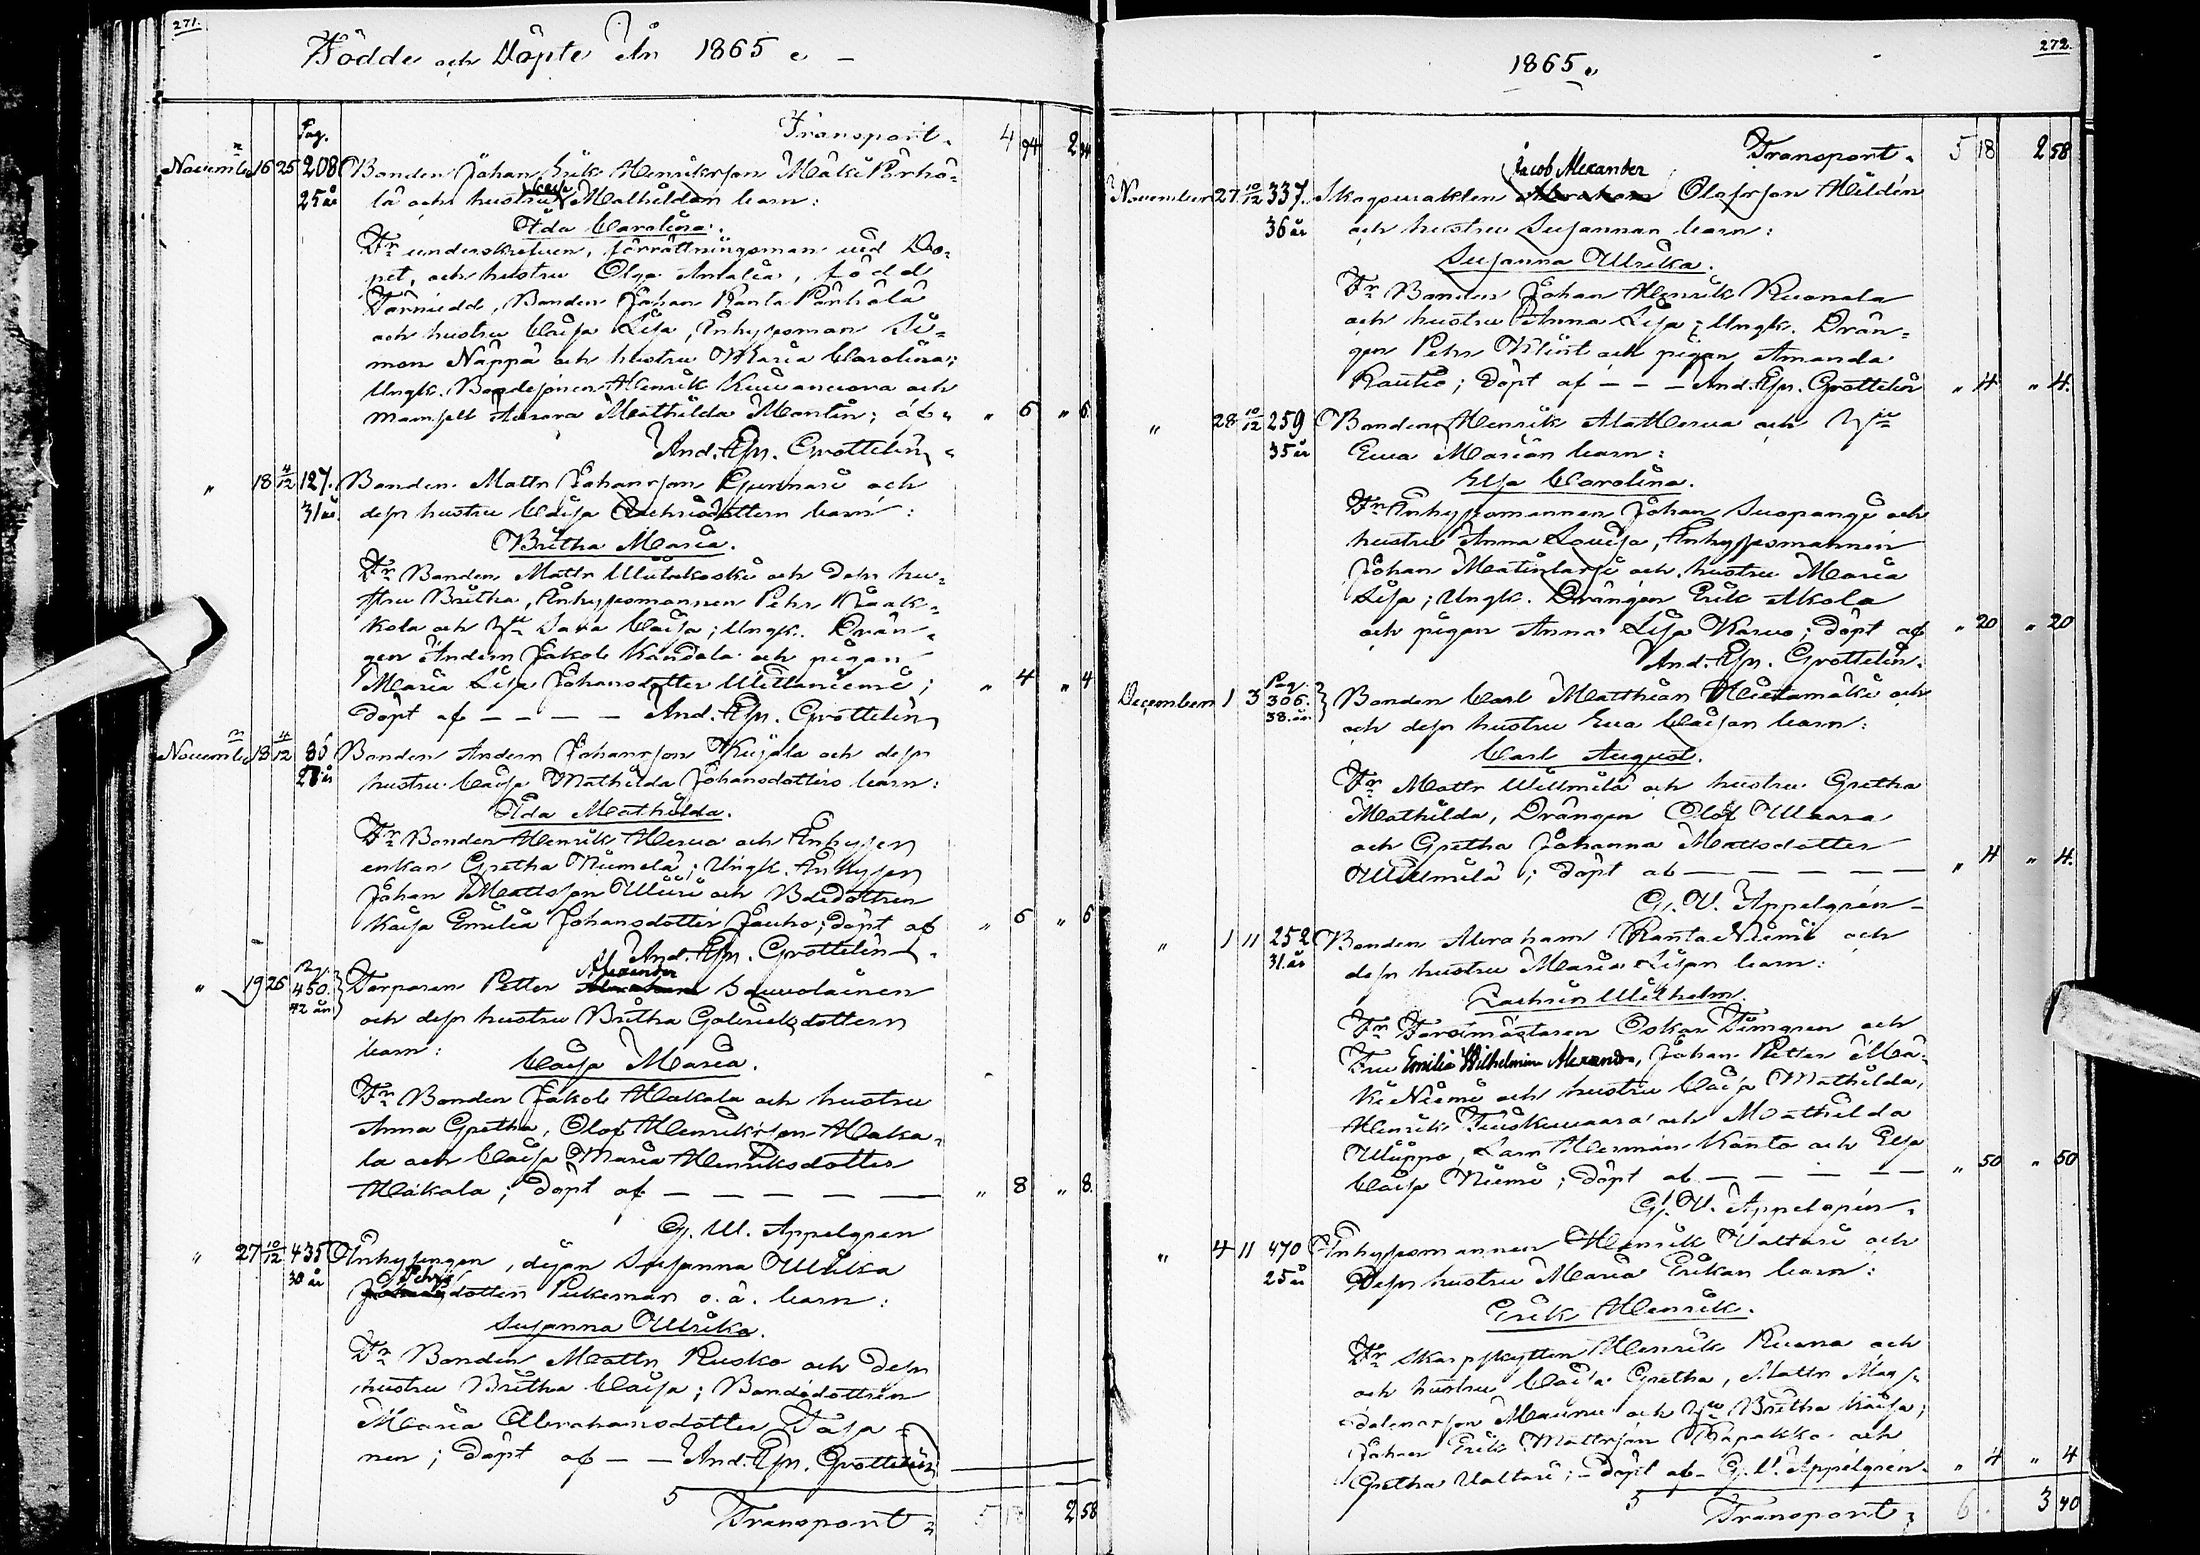 271.
Födde och Döpte År 1865
Pag.
Transport 4 94 2 34
November 16 25 208 Bonden Johan Erik Henriksson Mäki Pirhö-
25 år lä och hustru Caisa Mathildan barn:
Ida Carolina.
Fr underskrefven, förrättningsman vid Do-
pet, och hustru Olga Amalia, född
Bonden Johan Ranta Pörhölä
och hustru Caisa Lisa, Inhysesman Si-
mon Näppä och hustru Maria Carolina;
Ungk. Bondesonen Henrik Kuivanuora och
Mamsell Aurora Mathilda Montin; af „ 6 „ 6
And. Efr. Grottelin
„ 18 4/12 127. Bonden Matts Johansson Gunnari och
31 år dess hustru Caisa Zachrisdottern barn:
Britha Maria.
Fr Bonden Matts och dess hu-
stru Britha, Inhysesmannen Pehr Kaak-
kola och Hu Sara Caisa; Ungk. Drän-
gen Anders Jakob Kandala och pigan
Maria Lisa Johansdotter Wittaniemi; „ 4 „ 4
Döpt af — — — — And. Efr. Grottelin
November 18 4/12 85 Bonden Anders Johansson Kujala och dess
28 år hustru Caisa Mathilda Johansdotters barn:
Ida Mathilda.
Fr Bonden Henrik Herva och Inhyses
enkan Gretha Niemelä; Ungk. Inhyses
Johan Mattsson och Bdedottren
Kaisa Emilia Johansdotter Jauho; döpt af „ 6 „ 6
And. Efr. Grottelin
„ 19 26 450. Torparen Petter Alexander Sauvolainen
42 år och dess hustru Britha Gabrielsdottern
barn: Caisa Maria.
Fr Bonden Jakob Makala och hustru
Anna Gretha, Olof Henriksson Maka-
la och Caisa Maria Henriksdotter
Makala; Döpt af — — — — — „ 8 „ 8.
G. W. Appelgren
„ 27 10/12 435 Inhysingen, Susanna Ulrika
30 år Pehrsdotter Pukeman o. ä. barn:
Susanna Ulrika.
Fr Bonden Matts Rusko och dess
hustru Britha Caisa; Bondedottren
Maria Abrahamsdotter Tasa-
nen; Döpt af — — And. Efr. Grottelin
5 Transport 5 18 2 58
272.
1865.
Transport. 5 18 2 58
Jacob Alexander
November 27 10/12 337. Skogsvakten Abraham Olofsson Hildén
36 år och hustru Susannan barn:
Susanna Ulrika.
Fr Bonden Johan Henrik Kuonala
och hustru Anna Lisa; Ungk. Drän-
gen Pehr Klint och pigan Amanda
Rautio; Döpt af — — — And. Efr. Grottelin „ 4 „ 4.
„ 28 10/12 259 Bonden Henrik AlaHerva och Hu
35 år Eva Marian barn:
Elsa Carolina.
Fr Inhysesmannen Johan Suopanki och
hustru Anna Lovisa, Inhysesmannen
Johan Matinlassi och hustru Maria
Lisa; Ungk. Drängen Erik Akola
och pigan Anna Lisa Karvo; döpt af „ 20 „ 20
And. Efr. Grottelin.
Pag.
December 1 3 306. Bonden Carl Matthian Hietamäki och
38. år och dess hustru Eva Caisan barn:
Carl August.
Fr Matts Willmilä och hustru Gretha
Mathilda, Drängen Olof Waara
och Gretha Johanna Mattsdotter
Willmilä; döpt af — — — — — „ 4 „ 4.
G. W. Appelgrén
„ 1 11 252 Bonden Abraham RantaNiemi och
31. år dess hustru Maria Lisan barn:
Zachris Wilhelm.
Fr Forstmästaren Oskar Timgren och
Fru Emilia Wilhelmina Alexandra, Johan Petter Mä-
kiNiemi och hustru Caisa Mathilda,
Henrik och Mathilda
Lars Herman Kanto och Elsa
Caisa Niemi; Döpt af — — — — „ 50 „ 50
G. W. Appelgrén.
„ 4 11 470 Inhysesmannen Henrik Valtari och
25 år Dess hustru Maria Erikan barn:
Erik Henrik.
Fr Skarpskytten Henrik Kuona och
och hustru Caisa Gretha, Matts Mag-
dalenasson Maunu och Hu Britha Kaisa;
Johan Erik Mattsson Rapakko och
Gretha Valtari; — Döpt af G. W. Appelgrén. „ 4 „ 4
5 Transport 6 3 40